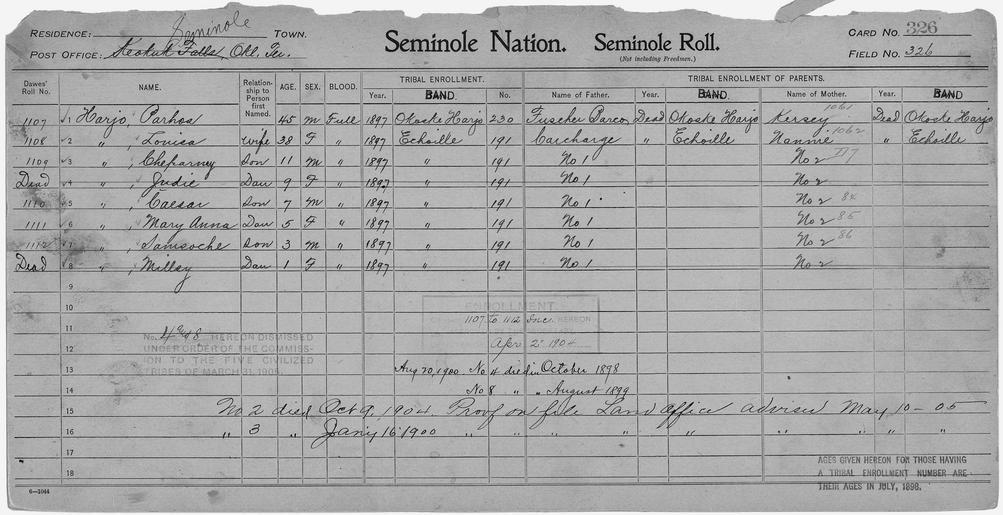 Seminole
RESIDENCE: TOWN.
POST OFFICE: Keokuk Falls, Okl. Ter.
Seminole Nation. Seminole Roll.
(Not including Freedmen.)
CARD NO. 326
FIELD NO. 326
Dawes' Roll No. NAME. Relationship to Person first Named. AGE. SEX. BLOOD. TRIBAL ENROLLMENT. Year. BAND. No. TRIBAL ENROLLMENT OF PARENTS. Name of Father. Year. BAND. Name of Mother. Year. BAND.
1107 1 Harjo, Parhos 45 M Full 1897 Okoske Harjo 230 Fuscher Parco Dead Okoske Harjo Kersey 1061 Dead Okoske Harjo
1108 2 " , Louisa wife 38 F " 1897 Echoille 191 Carcharge " Echoille Nannie 1062 " Echoille
1109 3 " , Cheparney Son 11 M " 1897 " 191 No 1 No 2
Dead 4 " , Judie Dau 9 F " 1897 " 191 No 1 No 2
1110 5 " , Caesar Son 7 M " 1897 " 191 No 1 No 2 84
1111 6 " , Mary Anna Dau 5 F " 1897 " 191 No 1 No 2 85
1112 7 " , Samsoche Son 3 M " 1897 " 191 No 1 No 2 86
Dead 8 " , Millsy Dau 1 F " 1897 " 191 No 1 No 2
9
10
ENROLLMENT
1107 to 1112 Inc. HEREON
11
No. 4 and 8 HEREON DISMISSED
UNDER ORDER OF THE COMMISSION TO THE FIVE CIVILIZED
TRIBES OF MARCH 31, 1905.
12 Apr 2 1904
13 Aug 20, 1900. No 4 died in October 1898
14 No 8 " " August 1899
15 No 2 died Oct 9, 1904. Proof on file Land Office advised May 10-05
16 " 3 " Jany 16 1900 " " " " " " "
17
18
AGES GIVEN HEREON FOR THOSE HAVING
A TRIBAL ENROLLMENT NUMBER ARE
THEIR AGES IN JULY, 1898.
6-1044